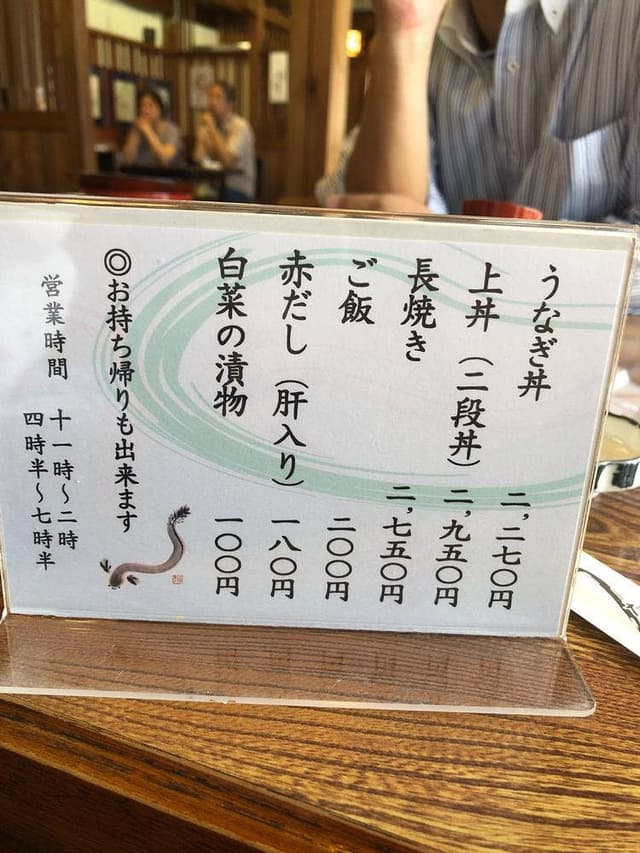 うなぎ丼 二,二七〇円
上丼（二段丼） 二,九五〇円
長焼き 二,七五〇円
ご飯 二〇〇円
赤だし（肝入り） 一八〇円
白菜の漬物 一〇〇円
◎お持ち帰りも出来ます
営業時間 十一時～二時
四時半～七時半